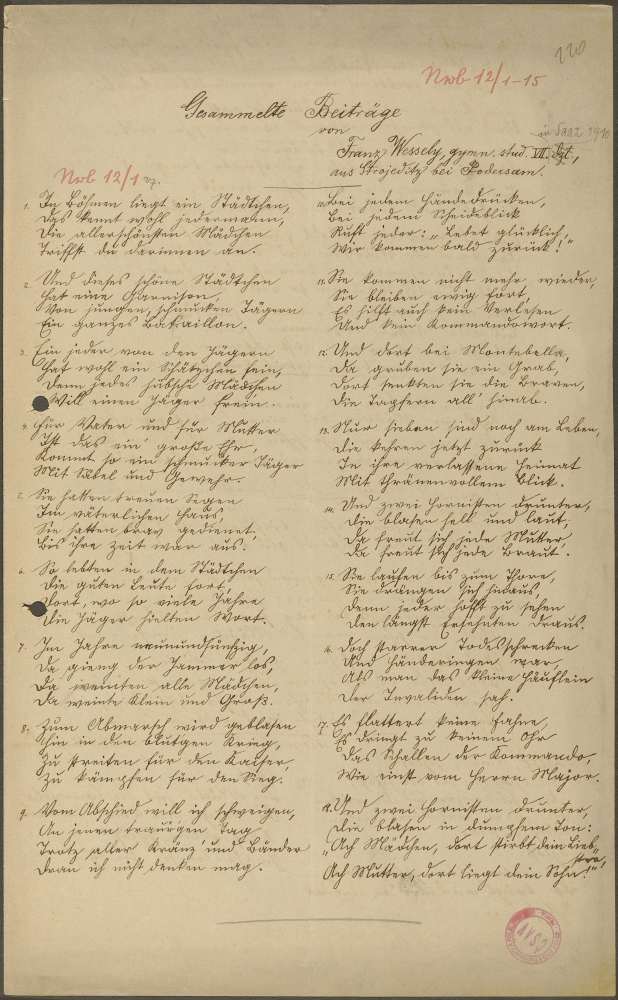 220
Nrb 12/1-15
Gesammelte Beiträge
von
in Saaz 1910
Franz Wessely, gymn. stud. VII. Kl.,
aus Strojeditz bei Podersam.
Nrb 12/1
1. In Böhmen liegt ein Städtchen,
Das kennt wohl jedermann,
Die allerschönsten Mädchen
Triffst du darinnen an.
2. Und dieses schöne Städtchen
Hat eine Garnison,
Von jungen, schmucken Jägern
Ein ganzes Bataillon.
3. Ein jeder von den Jägern
Hat wohl ein Schätzchen fein,
Denn jedes hübsche Mädchen
Will einen Jäger frein.
4. Für Vater und für Mutter
Ist das ein' große Ehr,
Kommt so ein schmucker Jäger
Mit Säbel und Gewehr.
5. Sie hatten treuen Segen
Im väterlichen Haus,
Sie hatten brav gedienet,
Bis ihre Zeit war aus.
6. So lebten in dem Städtchen
Die guten Leute fort,
Dort, wo so viele Jahre
Die Jäger hielten Wort.
7. Im Jahre neunundfünfzig,
Da gieng der Jammer los,
Da weinten alle Mädchen,
Da weinte Klein und Groß.
8. Zum Abmarsch wird geblasen
Hin in den blutgen Krieg,
Zu streiten für den Kaiser,
Zu kämpfen für den Sieg.
9. Vom Abschied will ich schweigen,
An jenen traurgen Tag
Trotz aller Kränz' und Bänder
Dran ich nicht denken mag.
10. Bei jedem Händedrücken,
Bei jedem Scheideblick
Ruft jeder: "Lebet glücklich,
Wir kommen bald zurück!"
11. Sie kommen nicht mehr wieder,
Sie bleiben ewig fort,
Es hilft auch kein Verlesen
Und kein Kommandowort.
12. Und dort bei Montebello,
Da gruben sie ein Grab,
Dort senkten sie die Braven,
Die Tapfern all' hinab.
13. Nur sieben sind noch am Leben,
Die kehren jetzt zurück
In ihre verlassene Heimat
Mit thränenvollem Blick.
14. Und zwei Hornisten drunter,
Die blasen hell und laut,
Da freut sich jede Mutter,
Da freut sich jede Braut.
15. Sie laufen bis zum Thore,
Sie drängen sich hinaus,
Denn jeder hofft zu sehen
Den längst Ersehnten draus.
16. Doch starrer Todesschrecken
Und Händeringen war,
Als man das kleine Häuflein
Der Invaliden sah.
17. Es flattert keine Fahne,
Es dringt zu keinem Ohr
Das Schallen der Kommando,
Wie einst vom Herrn Major.
18. Und zwei Hornisten drunter,
Die blasen in dumpfem Ton:
"Ach Mädchen, dort stirbt dein Lieb-
ster,
Ach Mutter, dort liegt dein Sohn!"